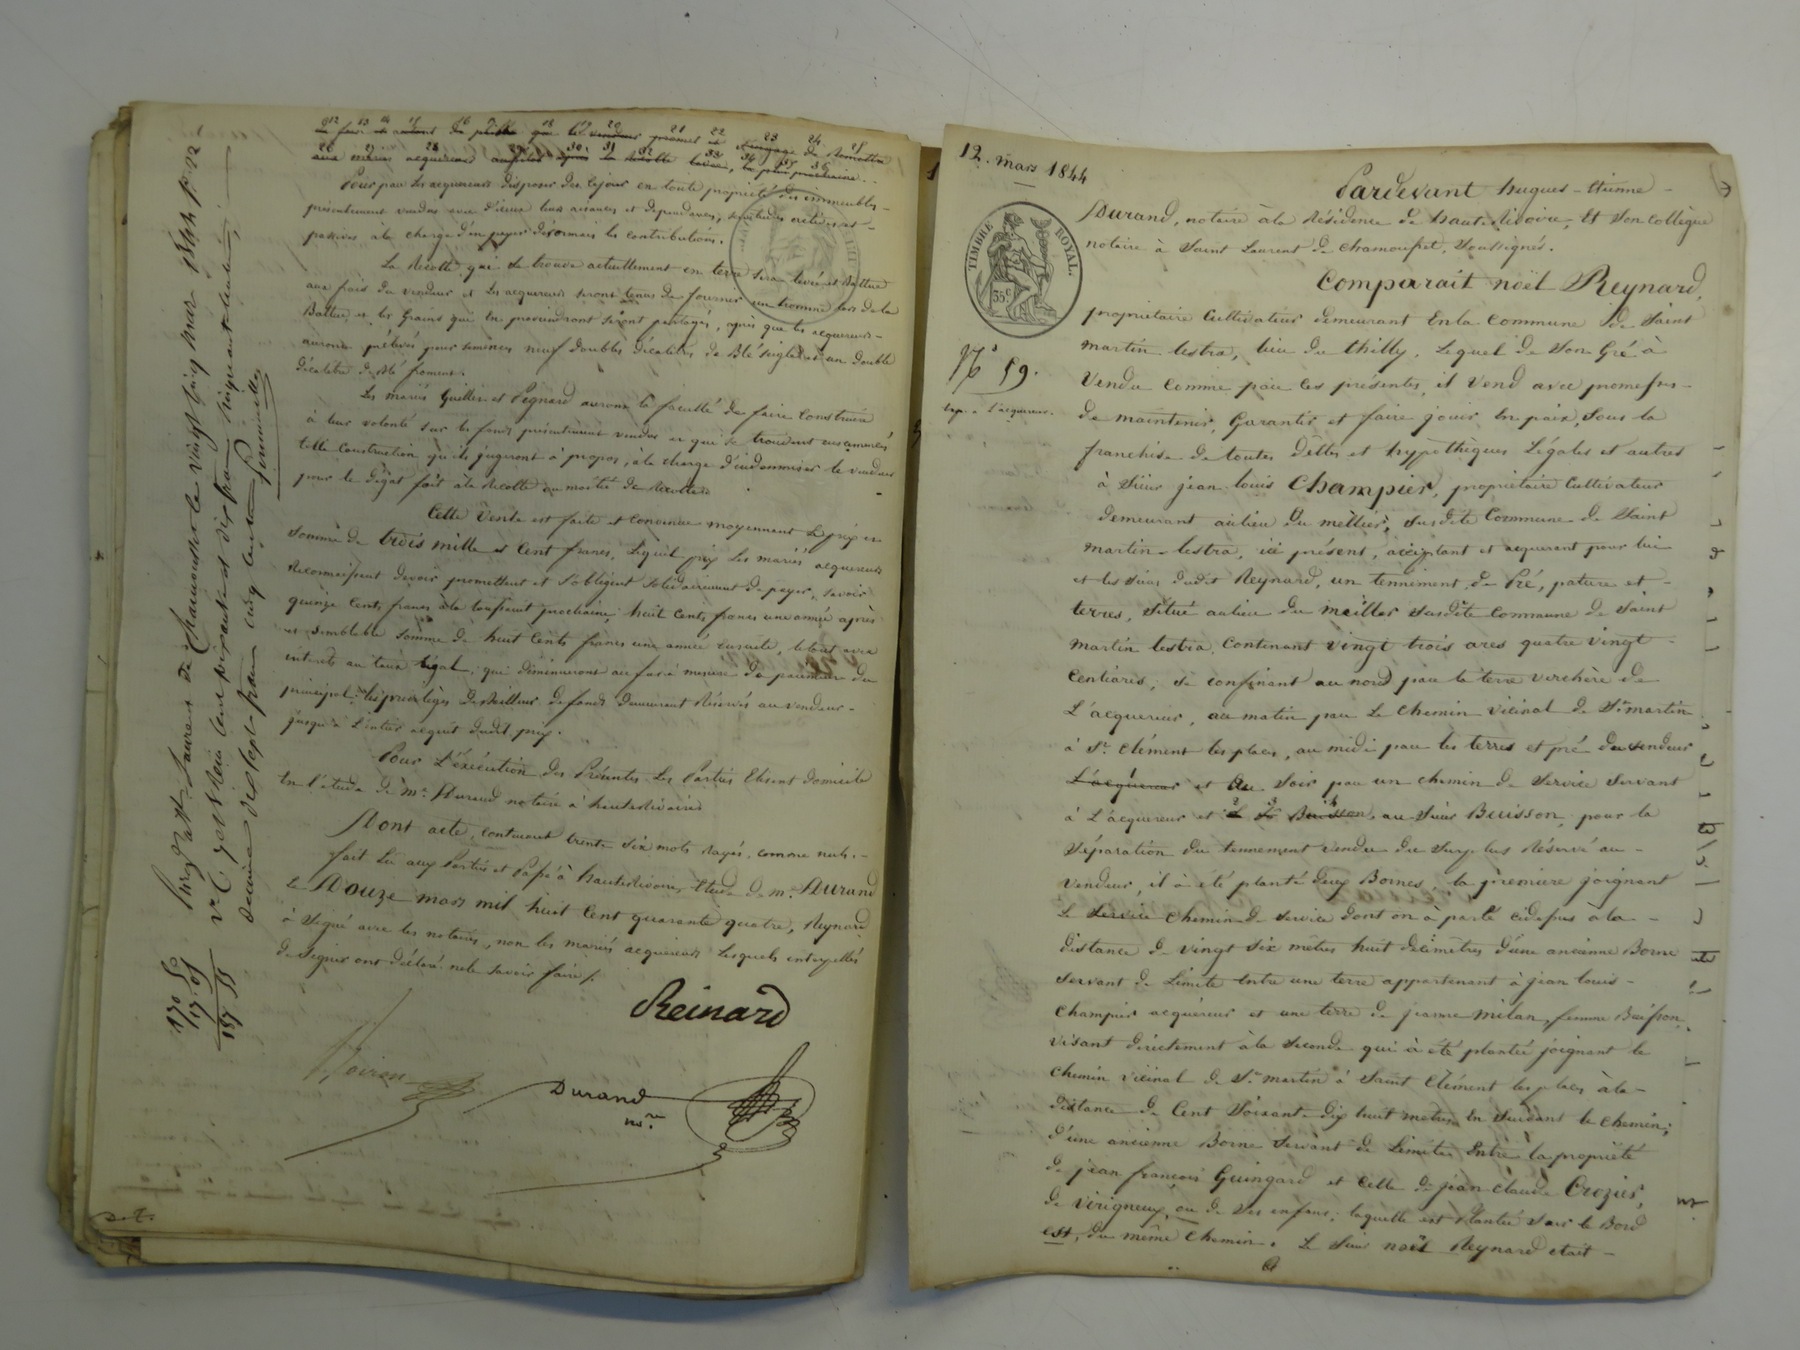 12 13 14 15 16 17 18 19 20 21 22 23 24 25
26 27 28 29 30 31 32 33 34 35 36
aux mariés acquéreurs aussitot après la Récolte levée, la plus prochaine.
Pour par les acquereurs disposer dès cejour en toute propriété des immeubles
présentement vendus avec d'iceux leurs aisances et dependances, servitudes actives et
passives, à la charge d'en payer desormais les contributions.
La Recolte qui se trouve actuellement en terre sera levée et Battue
aux frais du vendeur et les acquereurs seront tenus de fournir un homme lors de la
Battue, et les Grains qui en proviendront seront partagés, après que les acquereurs
auront prélevés pour semences neuf doubles décalitres de Blé Seigle et un double
décalitre de Blé froment.
Les mariés Guillon et Pegnard auront la faculté de faire Construire
à leur volonté sur les fonds présentement vendus
telle Construction qu'ils jugeront à propos, à la charge d'indemniser le vendeur
pour le dégat fait à la Récolte ou moitié de Récolte
Cette Vente est faite et Convenue moyennant le prix et
Somme de trois mille et Cent francs, lequel prix les mariés acquereurs
Reconnaissent devoir promettent et s'obligent solidairement de payer, savoir
quinze Cents francs à la toussaint prochaine, huit Cents francs une année après
et semblable somme de huit Cents francs une année ensuite, le tout avec
intérêts au taux légal, qui diminueront au fur à mesure de paiement du
principal. les privilèges de Bailleur de fonds demeurent Réservés au vendeur
jusqu'à l'entier acquit dudit prix.
Pour L'exécution des Présentes les Parties Elisent domicile
En l'étude de Me Durand notaire à hauterivoire
Dont acte, contenant trente Six mots Rayés, comme nuls.
fait Lu aux Parties et Passé à hauterivoire Etude de me Durand
le Douze mars mil huit Cent quarante quatre, Reynard
à Signé avec les notaires, non les mariés acquéreurs lesquels interpellés
de Signer ont déclaré ne le savoir faire /.
Reinard
Durand
nore
Enregé à St Laurent de Chamousset le vingt cinq mars 1844
Reçu cent soixante et dix francs cinquante centimes
decime dix sept francs cinq centimes
170 50
17 05
187 55
12. mars 1844
TIMBRE ROYAL.
35c
No 59.
Exp. à l'acquereur.
Pardevant hugues-étienne
Durand, notaire à la Résidence de Haute Rivoire, Et Son Collègue
notaire à Saint Laurent de Chamousset, Soussignés.
Comparait noël Reynard,
propriétaire Cultivateur demeurant En la Commune de Saint
martin lestra, lieu du thilly, Lequel de Son Gré à
Vendu Comme par ces présentes, il Vend avec promesses
de maintenir, Garantir et faire jouir En paix, Sous la
franchise de toutes Dettes et hyppothèques Légales et autres
à Sieur jean-louis Champier, propriétaire Cultivateur
demeurant au lieu du mellier, Susdite Commune de Saint
martin-lestra, ici présent, acceptant et acquerant pour lui
et les siens dudit Reynard, un tennement de Pré, pature et
terres, Situé au lieu du meillor Susdite Commune de Saint
martin lestra, Contenant vingt trois ares quatre vingt
Centiares; Se confinant au nord par la terre verchère de
L'acquereur, au matin par Le Chemin vicinal de St martin
à St Clément les places, au midi par les terres et pré du vendeur
L'acquereur et Au Soir par un chemin de Service Servant
à L'acquereur et à Sr Buisson, au Sieur Buisson, pour la
Séparation du tennement vendu du Surplus Réservé au
Vendeur, il à été planté deux Bornes, la première joignant
le Service Chemin de Service dont on à parlé cidessus à la
distance de vingt Six mètres huit décimètres d'une ancienne Borne
Servant de Limite Entre une terre appartenant à jean louis
Champier acquéreur et une terre de jeanne Milan, femme Buisson,
visant directement à la Seconde qui à été plantée joignant le
Chemin vicinal de St martin à Saint Clément les places à la
distance de Cent Soixante Dix huit mètres En Suivant le chemin;
d'une ancienne Borne Servant de Limites Entre la propriété
de jean françois Guingard et Celle de jean Claude Crozier,
de Virigneux, ou de Ses enfans; laquelle est plantée Sur le Bord
est, du même Chemin. Le Sieur noël Reynard était